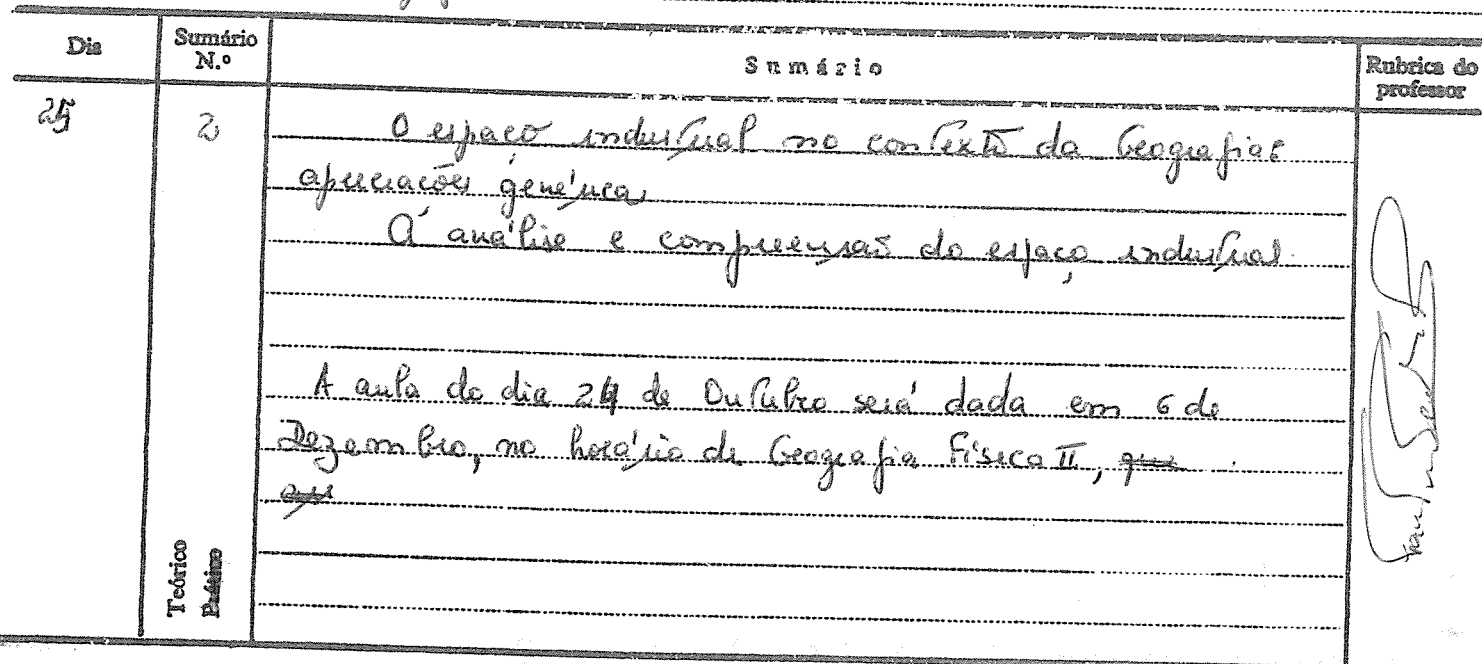 Dia Sumário N.º Sumário Rubrica do professor
25 2 O espaço industrial no contexto da Geografia:
apreciações genéricas
A análise e compreensão do espaço industrial.
A aula do dia 24 de Outubro será dada em 6 de
Dezembro, no horário de Geografia Física II,
Teórico
Prático